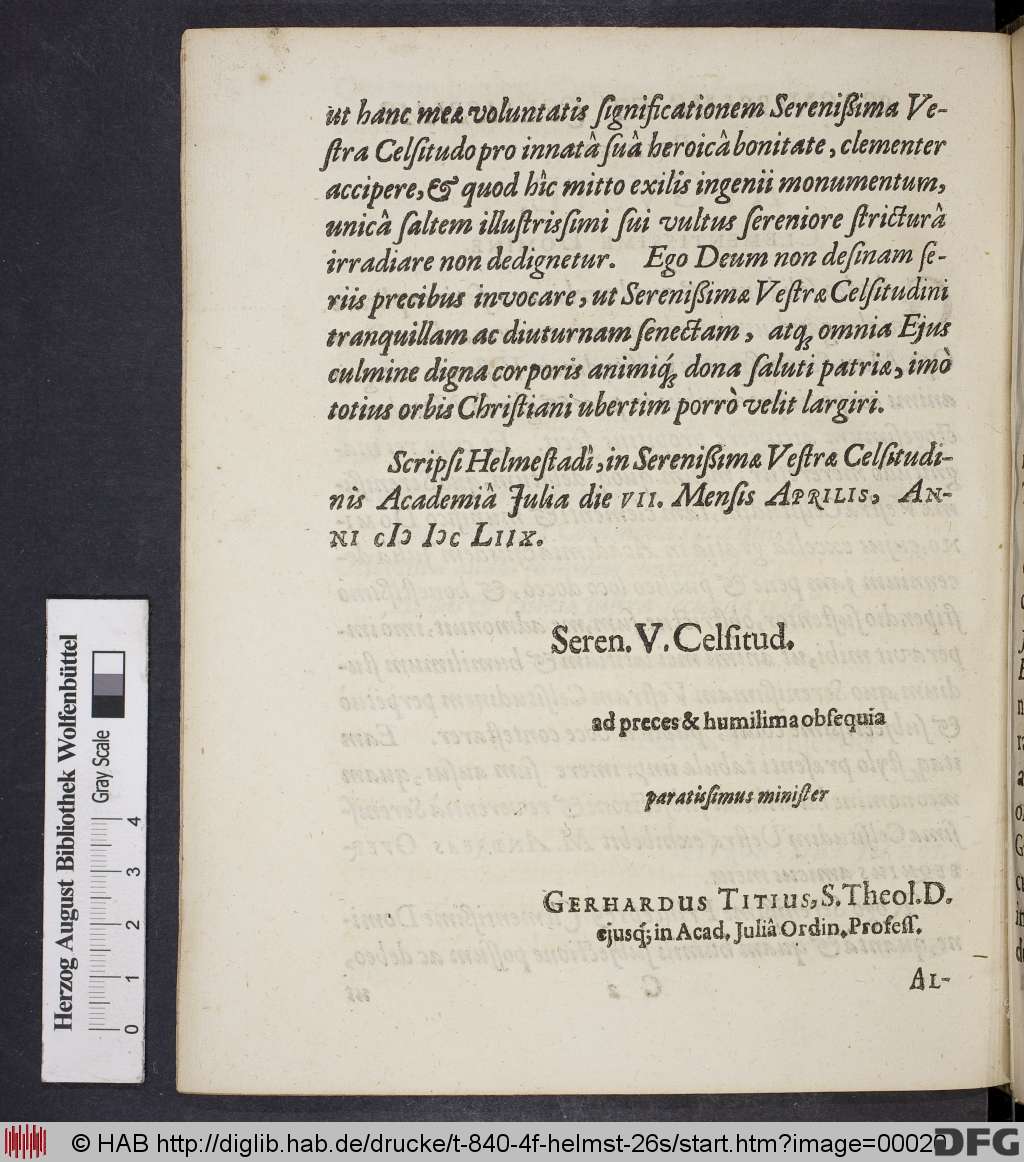 ut hanc meæ voluntatis ſignificationem Sereniſſima Ve-
ſtra Celſitudo pro innatâ ſuâ heroicâ bonitate, clementer
accipere, & quod hîc mitto exilis ingenii monumentum,
unicâ ſaltem illuſtrisſimi ſui vultus ſereniore ſtricturâ
irradiare non dedignetur. Ego Deum non deſinam ſe-
riis precibus invocare, ut Sereniſſimæ Veſtræ Celſitudini
tranquillam ac diuturnam ſenectam, atq; omnia Ejus
culmine digna corporis animiq́; dona ſaluti patriæ, imò
totius orbis Chriſtiani ubertim porrò velit largiri.
Scripſi Helmeſtadî, in Sereniſſimæ Veſtræ Celſitudi-
nis Academiâ Julia die VII. Menſis APRILIS, AN-
NI cIↃ IↃc LIIX.
Seren. V. Celſitud.
ad preces & humilima obſequia
paratiſſimus miniſter
GERHARDUS TITIUS, S. Theol. D.
ejusq́; in Acad. Juliâ Ordin. Profeſſ.
AL-
Herzog August Bibliothek Wolfenbüttel
Gray Scale
0 1 2 3 4
© HAB http://diglib.hab.de/drucke/t-840-4f-helmst-26s/start.htm?image=00020
DFG